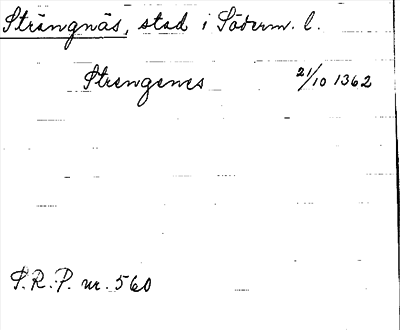 Strängnäs, stad i Söderm. l.
Strengenes 21/10 1362
S.R.P. nr. 560